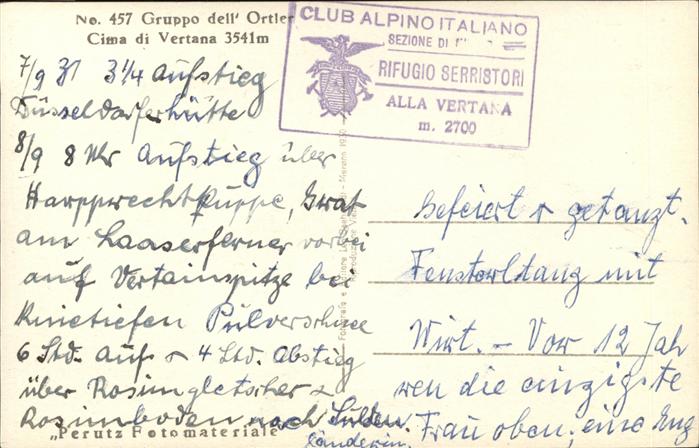 No. 457 Gruppo dell' Ortler
Cima di Vertana 3541m
CLUB ALPINO ITALIANO
SEZIONE DI
RIFUGIO SERRISTORI
ALLA VERTANA
m. 2700
7/9 31 3 1/4 Aufstieg
Düsseldorferhütte
8/9 8 Uhr Aufstieg über
Harpprechtkuppe, Grat
am Laaserferner vorbei
auf Vertainspitze bei
knietiefen Pulverschnee
6 Std. auf 4 Std. Abstieg
über Rosimgletscher
Rosimboden nach Sulden.
"Perutz Fotomateriale"
Gefeiert + getanzt.
Fensterltanz mit
Wirt. - Vor 12 Jah
ren die einzigste
Frau oben. eine Eng
länderin.